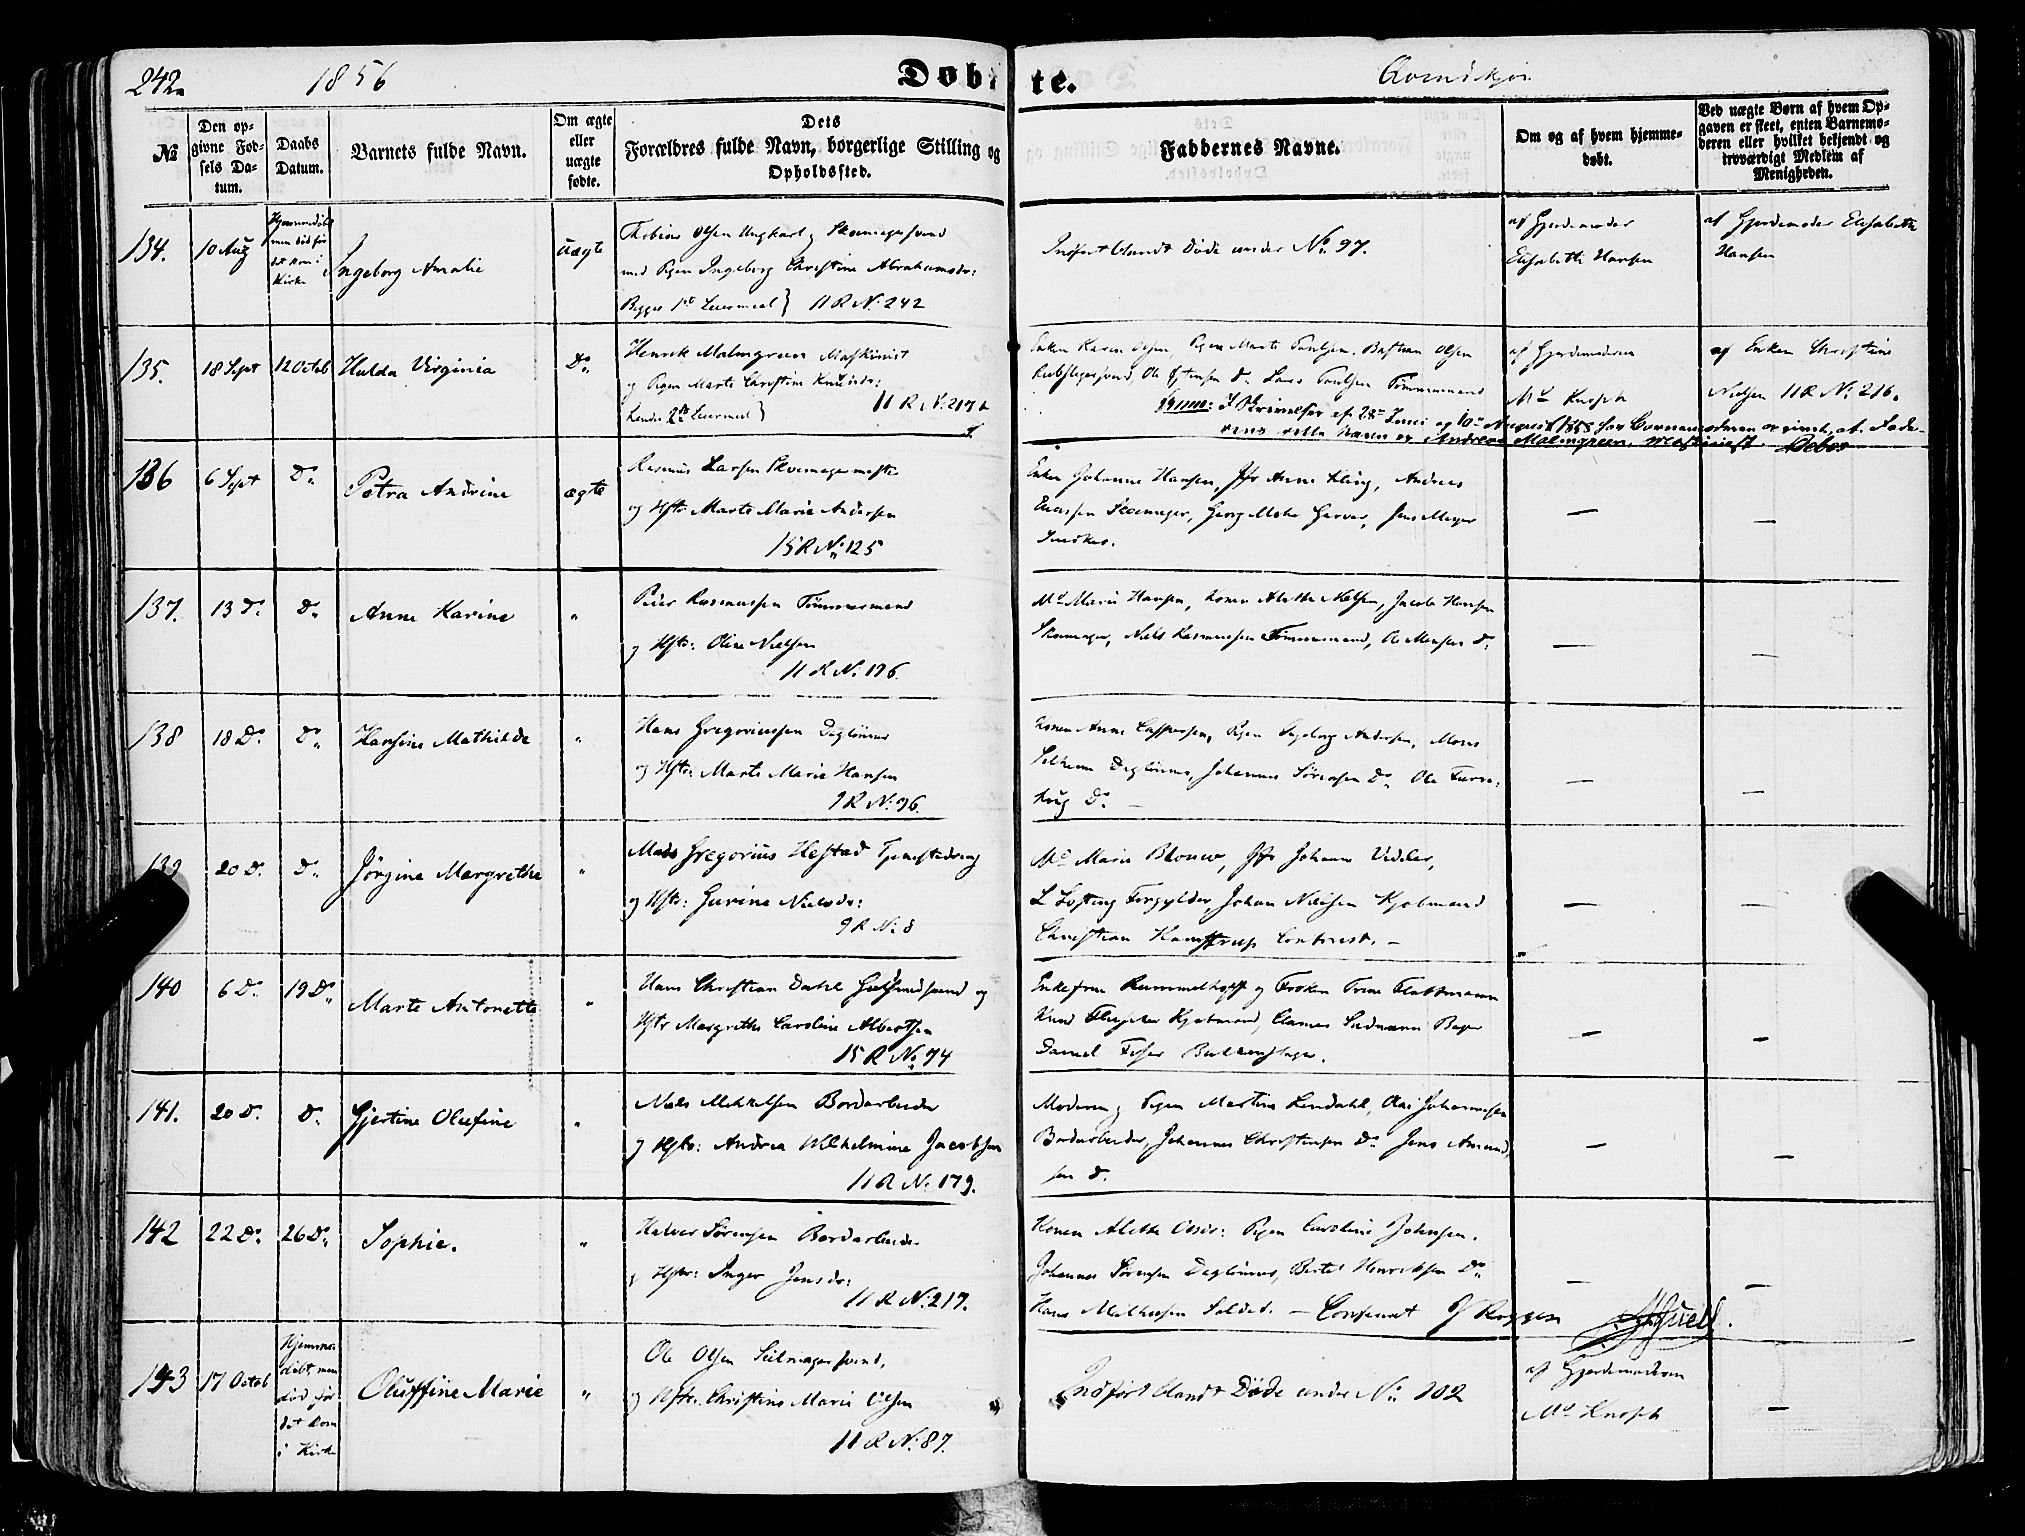 242
1856
Døbte.
Qvindkjøn
№
Den op-
givne Fød-
sels Da-
tum.
Daabs
Datum.
Barnets fulde Navn.
Om ægte
eller
uægte
fødte.
Dets
Forældres fulde Navn, borgerlige Stilling og
Opholdssted.
Faddernes Navne.
Om og af hvem hjemme-
døbt.
Ved uægte Børn af hvem Op-
gaven er skeet, enten Barnemo-
deren eller hvilket bekjendt og
troværdigt Medlem af
Menigheden.
134.
10 Aug
Hjemmedøbt
men død før
det kom i
Kirke
Ingeborg Amalie
Uægte
Thobias Olsen Ungkarl og Skomagersvend
med Pigen Ingeborg Christine Abrahamsdr:
Begges 1ste Leiermaal } 11 R N: 242
Indført blandt Døde under No 97.
af Gjordemoder
Elisabeth Hansen
af Gjordemoder Elisabeth
Hansen
135.
18 Sept
12 Octob
Hulda Virginia
Do
Henrik Malmgreen Maskinist
og Pigen Marte Christine Knudsdr:
hendes 2det Leiermaal }
11 R N: 217
Enken Karen Olsen, Pigen Marte Paulsen, Bastian Olsen
Rebslagersvend, Ole Do Lars Paulsen Tømmermand
af Gjordemoderen
Md Knoph
af Enken Christine
Nielsen 11 R N: 216.
I Skrivelser af 28de Juni og 10de August 1858 har Barnemoderen opgivet, at Fade-
rens rette Navn er Andreas Malmgreen, Maskinist. Debes
136
6 Sept
Do
Petra Andrine
ægte
Rasmus Larsen Skomagermester
og Hstr: Marte Marie Andersen
15 R N: 125
Enken Johanne Hansen, Jfr Anne Kling, Andreas
Skomager, Georg Mohr Garver, Jens Meyer
Snedker.
—
—
137.
13 Do
Do
Anne Karine
"
Peder Rasmussen Tømmermand
og Hstr: Oline Nielsen
11 R N: 196.
Md Marie Hansen, Konen Alethe Nilsen, Jacob Hansen
Skomager, Niels Rasmussen Tømmermand, Ole Monsen Do
—
—
138
18 Do
Do
Hansine Mathilde
"
Hans Gregoriussen Dagleiner
og Hstr: Marte Marie Hansen
9 R N: 96.
Konen Anne Caspersen, Pigen Ingeborg Andersen, Mons
Dagleiner, Johannes Sørensen Do Ole
Do —
—
—
139
20 Do
Do
Jørgine Margrethe
"
Mads Gregorius Hestad Tjenestedreng
og Hstr: Gurine Nielsdr:
9 R N: 8
Md Marie Blouw, Jfr Johanne
L Losting Forgylder, Johan Nilsen Kjøbmand
Christian Kamstrup Contorist. —
—
—
140
6 Do
19 Do
Marte Antonette
"
Hans Christian Dahl Guldsmedsvend og
Hstr Margrethe Caroline Albertsen
15 R No 74
Enkefrue Rummelhoff og Frøken Trine Flottmann
Knud Kjøbmand, Claus Sudmann Bager
Daniel
—
—
141.
20 Do
Do
Gjertine Olufine
"
Niels Mikkelsen Bordarbeider
og Hstr: Andrea Wilhelmine Jacobsen
11 R N: 179.
Moderen og Pigen Martine Lindahl, Olai Johannesen
Bordarbeider, Johannes Christensen Do Jens Amund-
sen Do
—
—
142
22 Do
26 Do
Sophie.
"
Halver Sørensen Bordarbeider
og Hstr: Inger Jensdr:
11 R N: 217.
Konen Alethe Pigen Caroline Johnsen.
Johannes Sørensen Dagleiner, Bertel Henriksen Do
Hans Mathiesen Soldat. — Conferert
—
—
143
17 Octob
Hjemme-
døbt, men
død før
det kom
i Kirke
Oluffine Marie
"
Ole Olsen Seilmagersvend,
og Hstr: Christine Marie Olsen
11 R N: 87.
Indført blandt Døde under No 102
af Gjordemoderen
Md Knoph
—